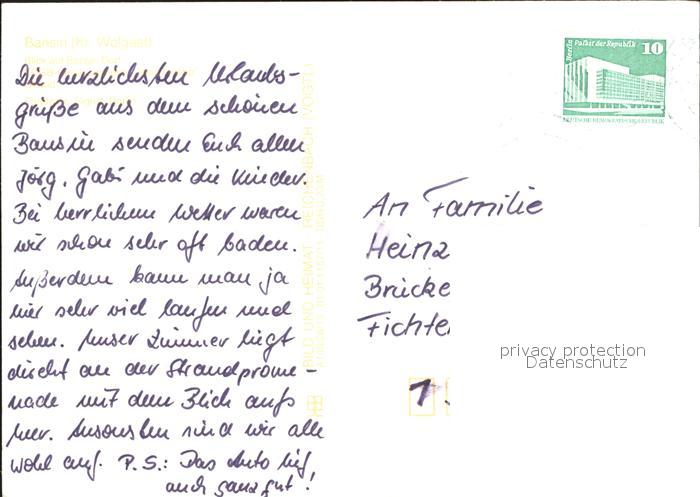 Bansin (Kr. Wolgast)
Die herzlichsten Urlaubs-
grüße aus dem schönen
Bansin senden Euch allen
Jörg, Gabi und die Kinder.
Bei herrlichem Wetter waren
wir schon sehr oft baden.
Außerdem kann man ja
hier sehr viel laufen und
sehen. Unser Zimmer liegt
direkt an der Strandprome-
nade mit dem Blick aufs
Meer. Ansonsten sind wir alle
wohl auf. P.S.: Das Auto lief
auch ganz gut!
BILD UND HEIMAT REICHENBACH (VOGTL)
Berlin Palast der Republik 10
DEUTSCHE DEMOKRATISCHE REPUBLIK
An Familie
Heinz
Brücke
Fichte
privacy protection
Datenschutz